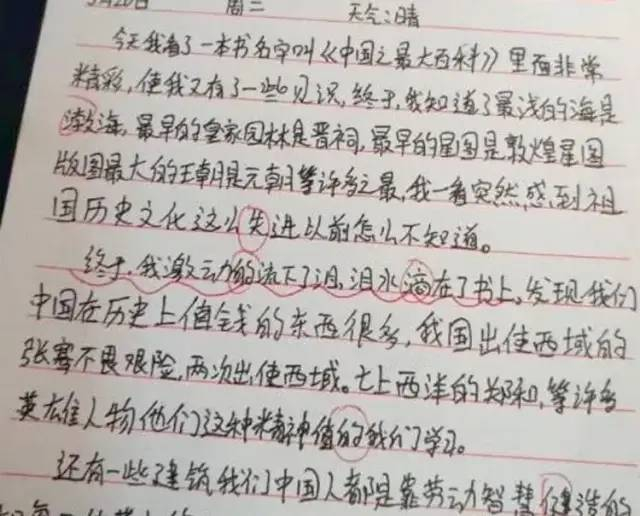 5月20日 周二 天气:晴
今天我看了一本书名字叫《中国之最大百科》里面非常
精彩,使我又有了一些见识,终于,我知道了最浅的海是
渤海,最早的皇家园林是晋祠,最早的星图是敦煌星图
版图最大的王朝是元朝等许多之最,我一看突然感到祖
国历史文化这么先进以前怎么不知道。
终于,我激动的流下了泪,泪水滴在了书上,发现我们
中国在历史上值钱的东西很多,我国出使西域的
张骞不畏艰险,两次出使西域。七上西洋的郑和,等许多
英雄人物,他们这种精神值的我们学习。
还有一些建筑,我们中国人都是靠劳动智慧建造的